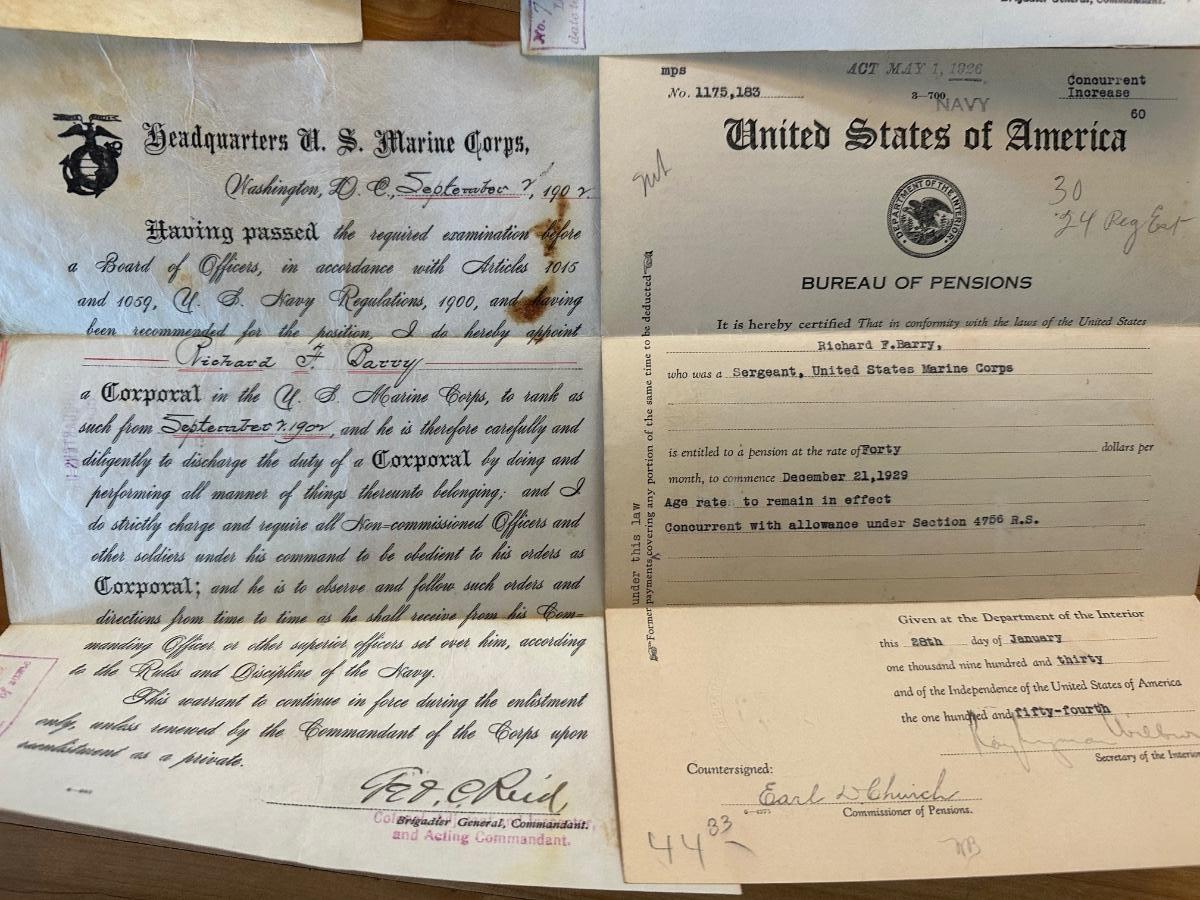 Brigadier General, Commandant.
No. 7
Headquarters U. S. Marine Corps,
Washington, D. C., September 2, 1902.
Having passed the required examination before
a Board of Officers, in accordance with Articles 1015
and 1059, U. S. Navy Regulations, 1900, and having
been recommended for the position, I do hereby appoint
Richard F. Barry
a Corporal in the U. S. Marine Corps, to rank as
such from September 2, 1902, and he is therefore carefully and
diligently to discharge the duty of a Corporal by doing and
performing all manner of things thereunto belonging; and I
do strictly charge and require all Non-commissioned Officers and
other soldiers under his command to be obedient to his orders as
Corporal; and he is to observe and follow such orders and
directions from time to time as he shall receive from his Com-
manding Officer or other superior officers set over him, according
to the Rules and Discipline of the Navy.
This warrant to continue in force during the enlistment
only, unless renewed by the Commandant of the Corps upon
reenlistment as a private.
Geo. C. Reid
Brigadier General, Commandant.
and Acting Commandant.
mps
ACT MAY 1, 1926
No. 1175,183
3—700
NAVY
Concurrent
Increase
60
United States of America
30
'24 Reg Est
DEPARTMENT OF THE INTERIOR
BUREAU OF PENSIONS
It is hereby certified That in conformity with the laws of the United States
Richard F.Barry,
who was a Sergeant, United States Marine Corps
is entitled to a pension at the rate of Forty dollars per
month, to commence December 21,1929
Age rate to remain in effect
Concurrent with allowance under Section 4756 R.S.
under this law
Former payments covering any portion of the same time to be deducted
Given at the Department of the Interior
this 28th day of January
one thousand nine hundred and thirty
and of the Independence of the United States of America
the one hundred and fifty-fourth
Ray Lyman Wilbur
Secretary of the Interior
Countersigned:
Earl D. Church
Commissioner of Pensions.
44 33